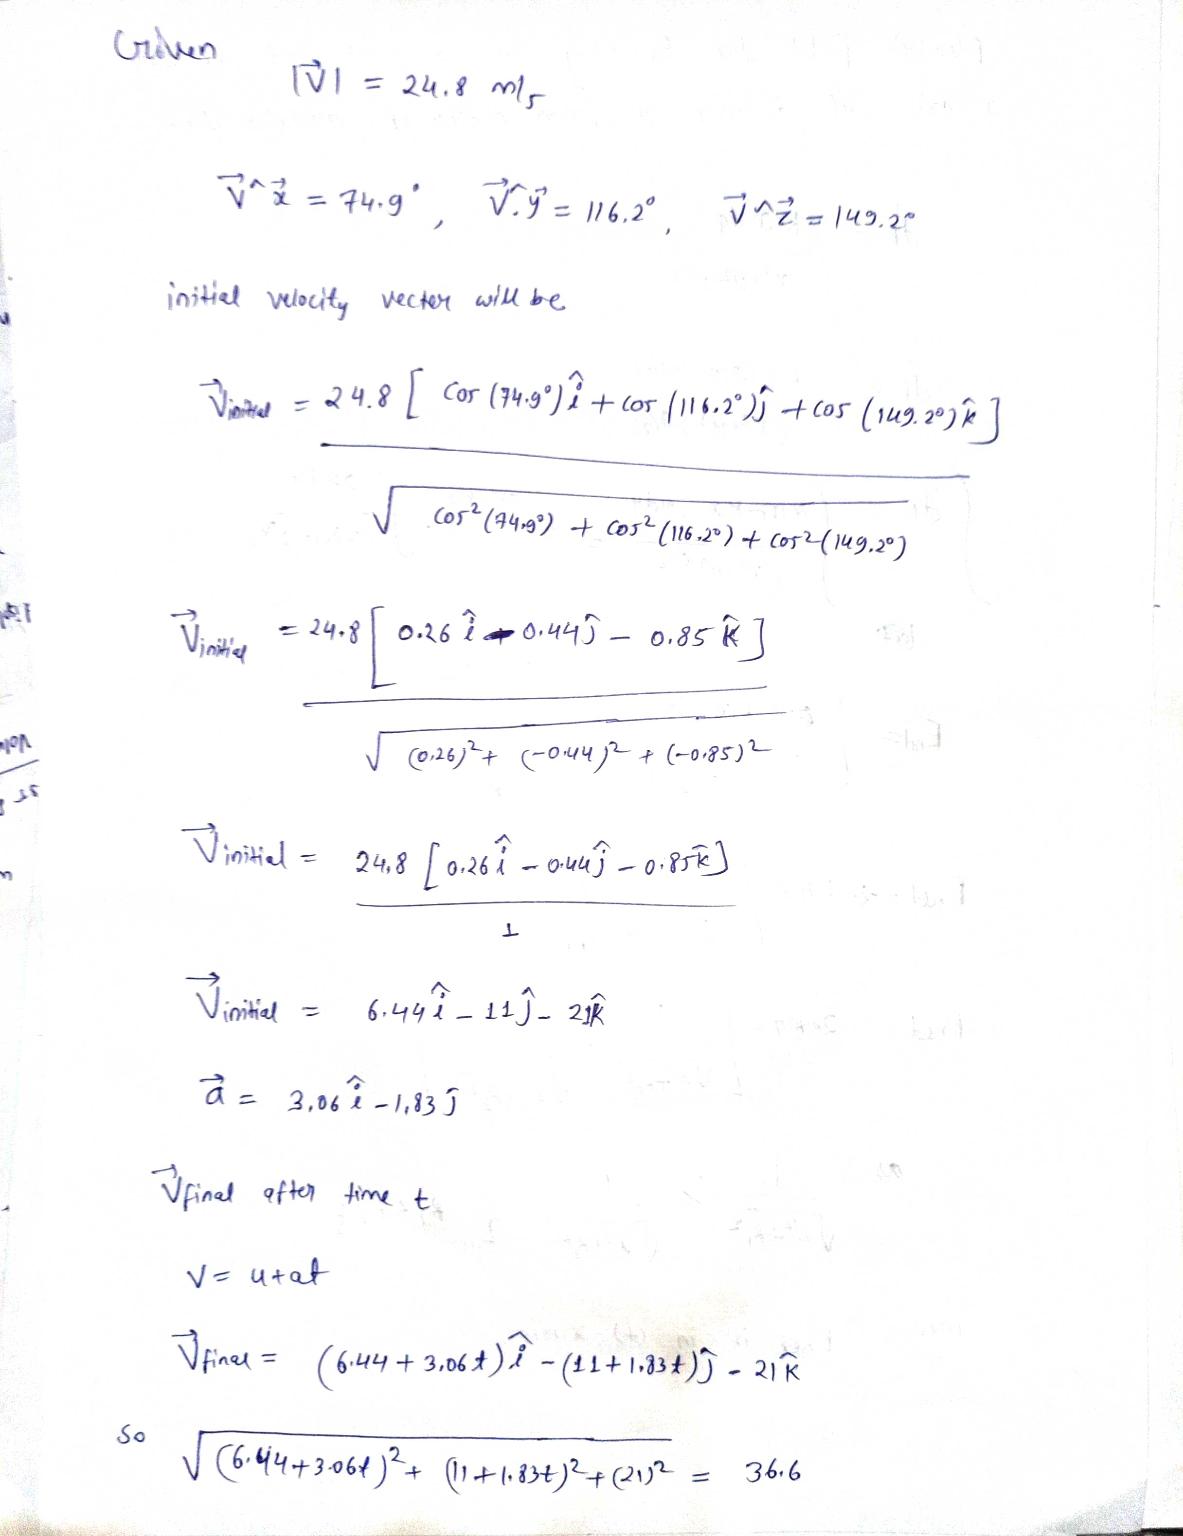 Given
|V⃗| = 24.8 m/s
V⃗^x⃗ = 74.9°, V⃗^y⃗ = 116.2°, V⃗^z⃗ = 149.2°
initial velocity vector will be
V⃗initial = 24.8 [ cos (74.9°) î + cos (116.2°) ĵ + cos (149.2°) k̂ ]
√ cos² (74.9°) + cos² (116.2°) + cos² (149.2°)
V⃗initial = 24.8 [ 0.26 î - 0.44 ĵ - 0.85 k̂ ]
√ (0.26)² + (-0.44)² + (-0.85)²
V⃗initial = 24.8 [ 0.26 î - 0.44 ĵ - 0.85 k̂ ]
1
V⃗initial = 6.44 î - 11 ĵ - 21 k̂
a⃗ = 3.06 î - 1.83 ĵ
V⃗final after time t
V = u + at
V⃗final = (6.44 + 3.06t) î - (11 + 1.83t) ĵ - 21 k̂
So √ (6.44 + 3.06t)² + (11 + 1.83t)² + (21)² = 36.6